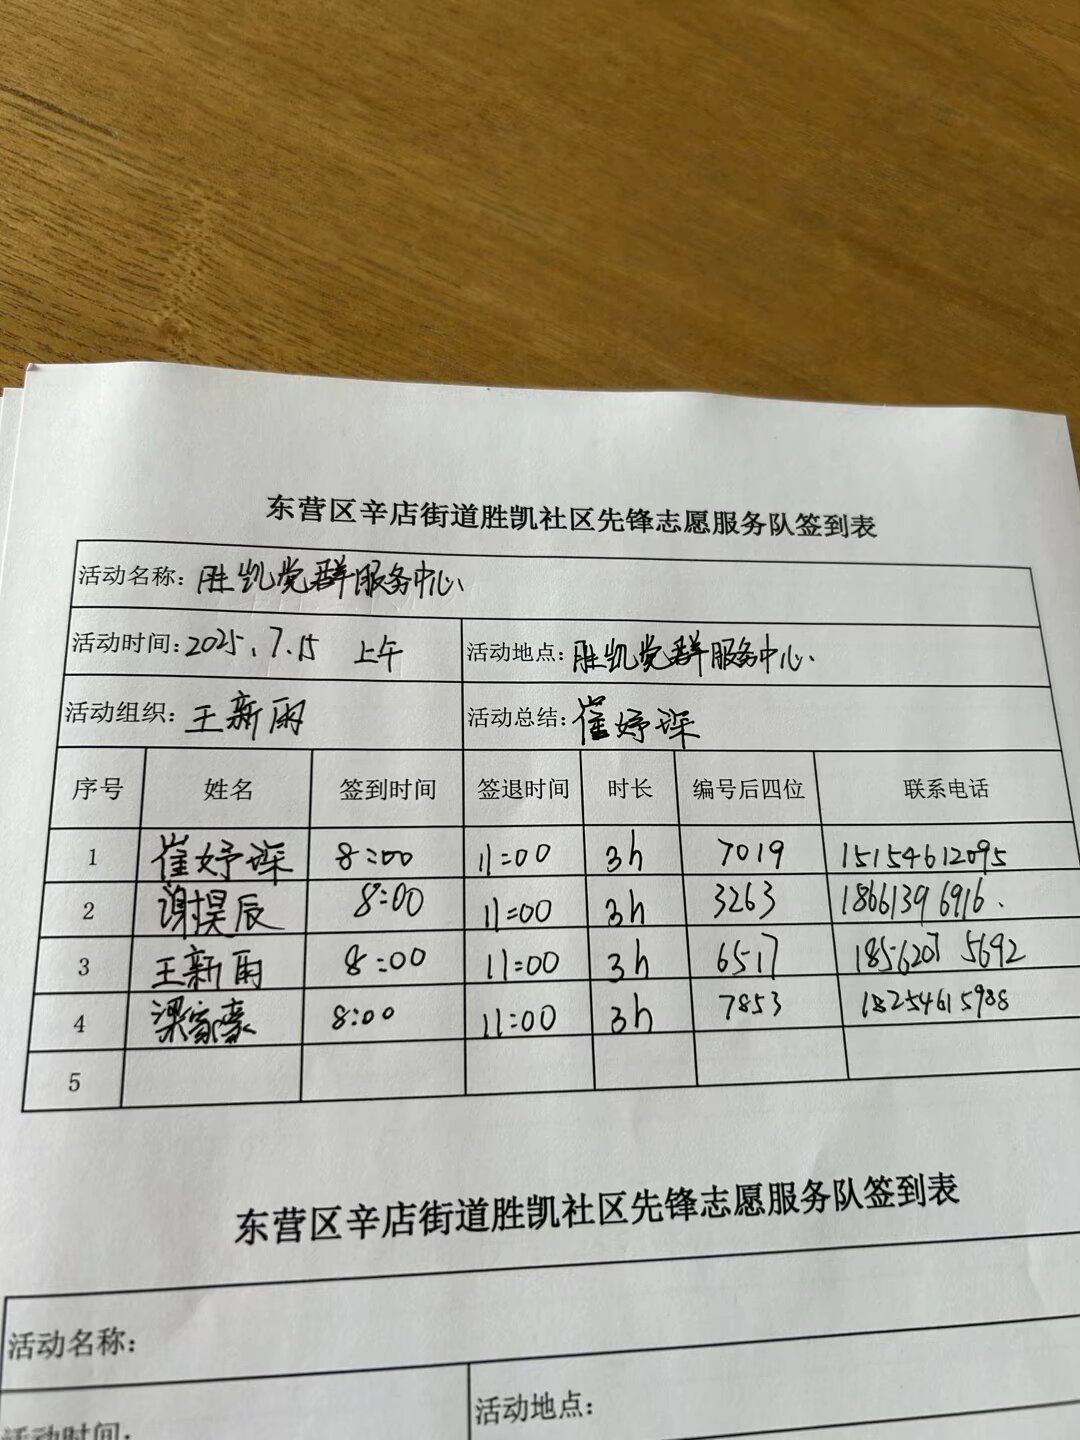 东营区辛店街道胜凯社区先锋志愿服务队签到表
活动名称：胜凯党群服务中心
活动时间：2025.7.15 上午 活动地点：胜凯党群服务中心.
活动组织：王新雨 活动总结：崔妤琛
序号 姓名 签到时间 签退时间 时长 编号后四位 联系电话
1 崔妤琛 8:00 11:00 3h 7019 15154612095
2 谢昊辰 8:00 11:00 3h 3263 18661396916.
3 王新雨 8:00 11:00 3h 6517 18562075692
4 梁家豪 8:00 11:00 3h 7853 18254615988
5
东营区辛店街道胜凯社区先锋志愿服务队签到表
活动名称：
活动时间： 活动地点：